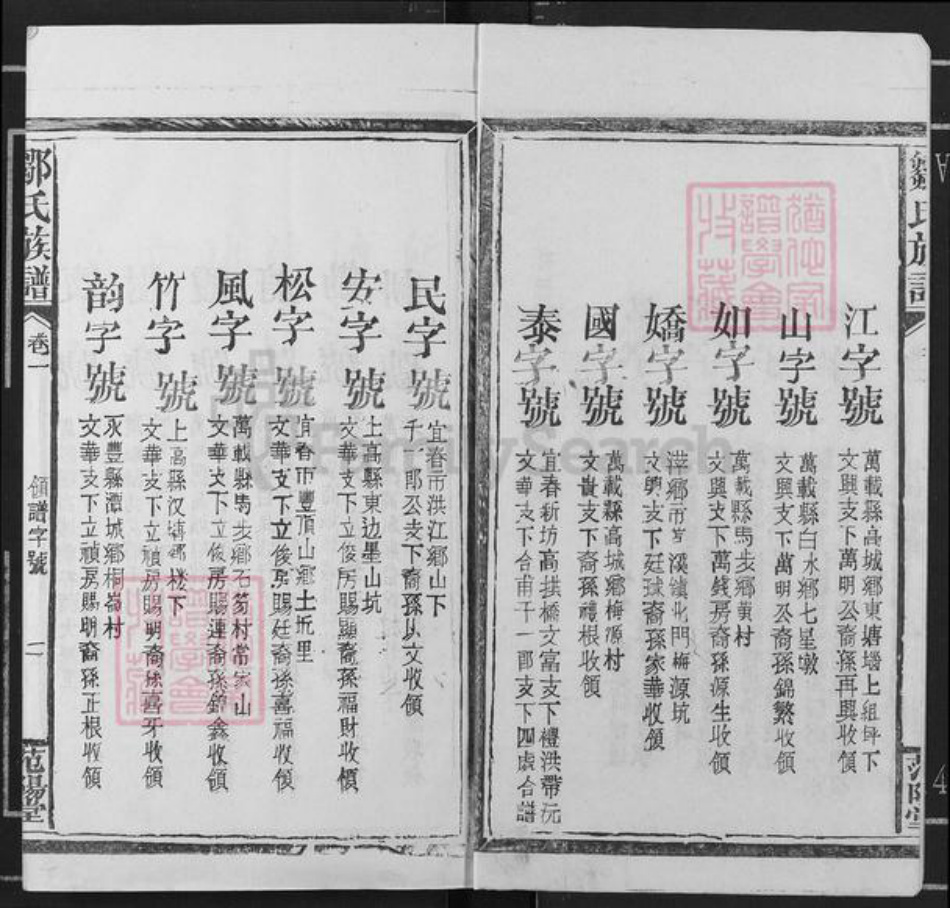 鄒氏族譜
江字號
萬載縣高城鄉東塘墈上組坪下
文興支下萬明公裔孫再興收領
山字號
萬載縣白水鄉七星墩
文興支下萬明公裔孫錦繁收領
如字號
萬載縣馬步鄉黄村
文興支下萬錢房裔孫源生收領
嬌字號
萍鄉市 溪鎮北門梅源坑
文興支下廷球裔孫家華收領
國字號
萬載縣高城鄉梅源村
文貴支下裔孫禮根收領
泰字號
宜春新坊高拱橋文富支下禮洪帶沅
文華支下合甫千一郎支下四處合譜
民字號
宜春市洪江鄉山下
千一郎公支下裔孫以文收領
安字號
上高縣東边墨山坑
文華支下立俊房賜顯裔孫福財收領
松字號
宜春市豐頂山鄉土坵里
文華支下立俊房賜廷裔孫嵩福收領
風字號
萬載縣馬步鄉石笏村常家山
文華支下立俊房賜連裔孫錦鑫收領
竹字號
上高縣汉塘鄉 楼下
文華支下立禎房賜明裔孫喜牙收領
韵字號
永豐縣潭城鄉桐崙村
文華支下立禎房賜明裔孫正根收領
鄒氏族譜
卷一
領譜字號
二
范陽堂
FamilySearch